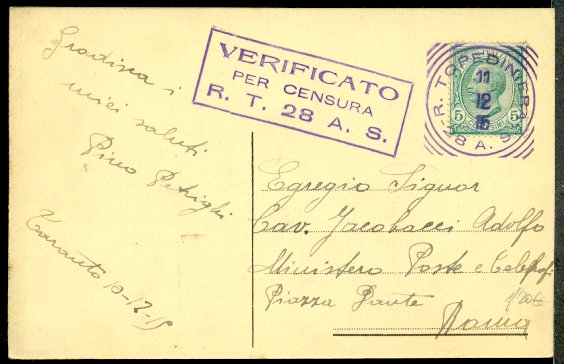 Gradisca i
miei saluti
Pino Petrighi
Taranto 10-12-15
VERIFICATO
PER CENSURA
R. T. 28 A. S.
R. TORPEDINIERA
28 A. S.
11
12
15
5 5
Egregio Signor
Cav. Jacobacci Adolfo
Ministero Poste e Telegrafi
Piazza Dante
Roma